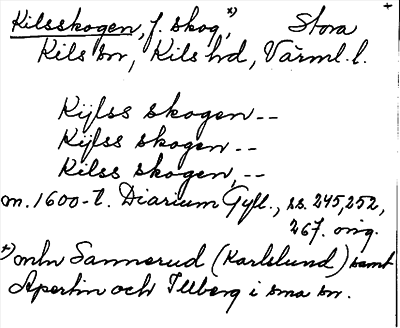 Kilsskogen, f. skog,ˣ⁾ Stora +
Kils sn, Kils hd, Värml. l.
Kijlss skogen --
Kijlss skogen --
Kilss skogen, --
m. 1600-t. Diarium Gyll., ss. 245, 252,
267. orig.
ˣ⁾ mln Sannerud (Karlslund) samt
Apertin och Illberg i sma sn.